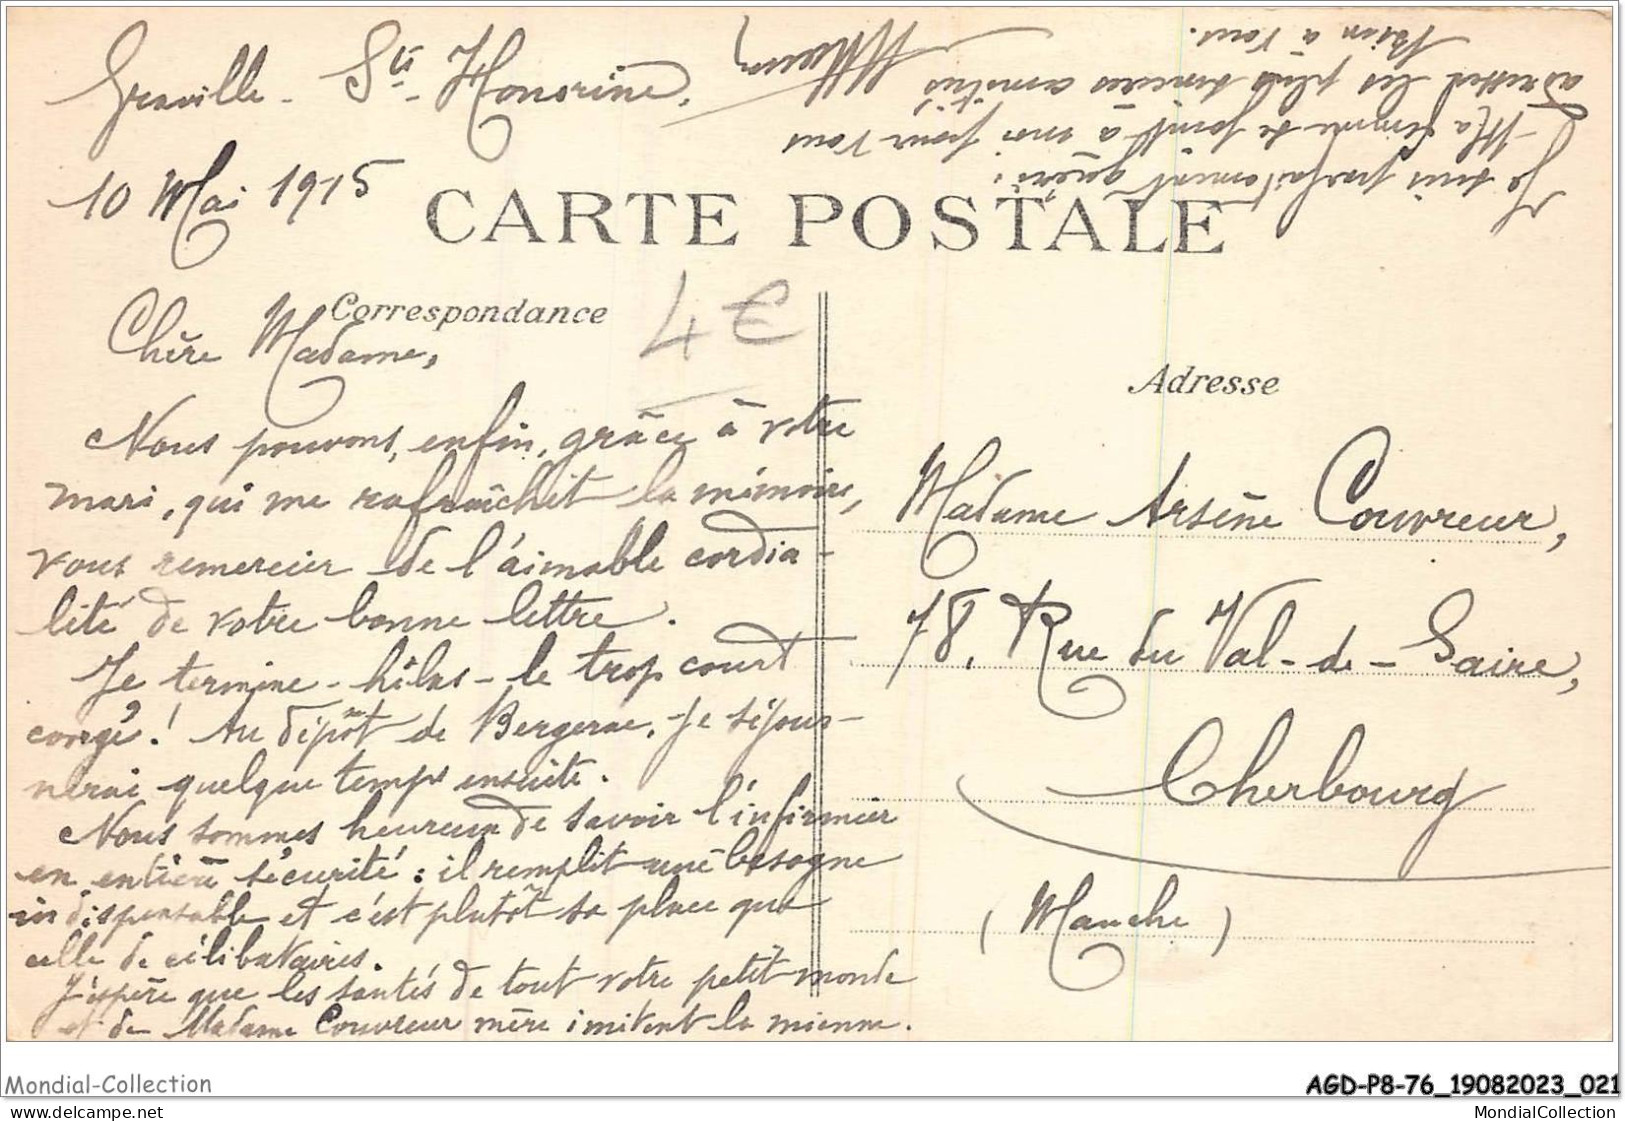 Graville - Ste - Honorine,
10 Mai 1915
CARTE POSTALE
Correspondance
4€
Chère Madame,
Nous pouvons, enfin, grâce à votre
mari, qui me rafraîchit la mémoire,
vous remercier de l'aimable cordia-
lité de votre bonne lettre.
Je termine - hélas - le trop court
congé ! Au dépôt de Bergerac, je séjour-
nerai quelque temps ensuite.
Nous sommes heureux de savoir l'infirmier
en entière sécurité : il remplit une besogne
indispensable et c'est plutôt sa place que
celle de célibataires.
J'espère que les santés de tout votre petit monde
et de Madame Couvreur mère imitent la mienne.
Je suis parfaitement guéri ;
Ma femme se joint à moi pour vous
adresser les plus sincères amitiés
Bien à vous.
Adresse
Madame Arsène Couvreur,
78, Rue du Val-de-Saire,
Cherbourg
(Manche)
Mondial-Collection
AGD-P8-76_19082023_021
delcampe.net
MondialCollection